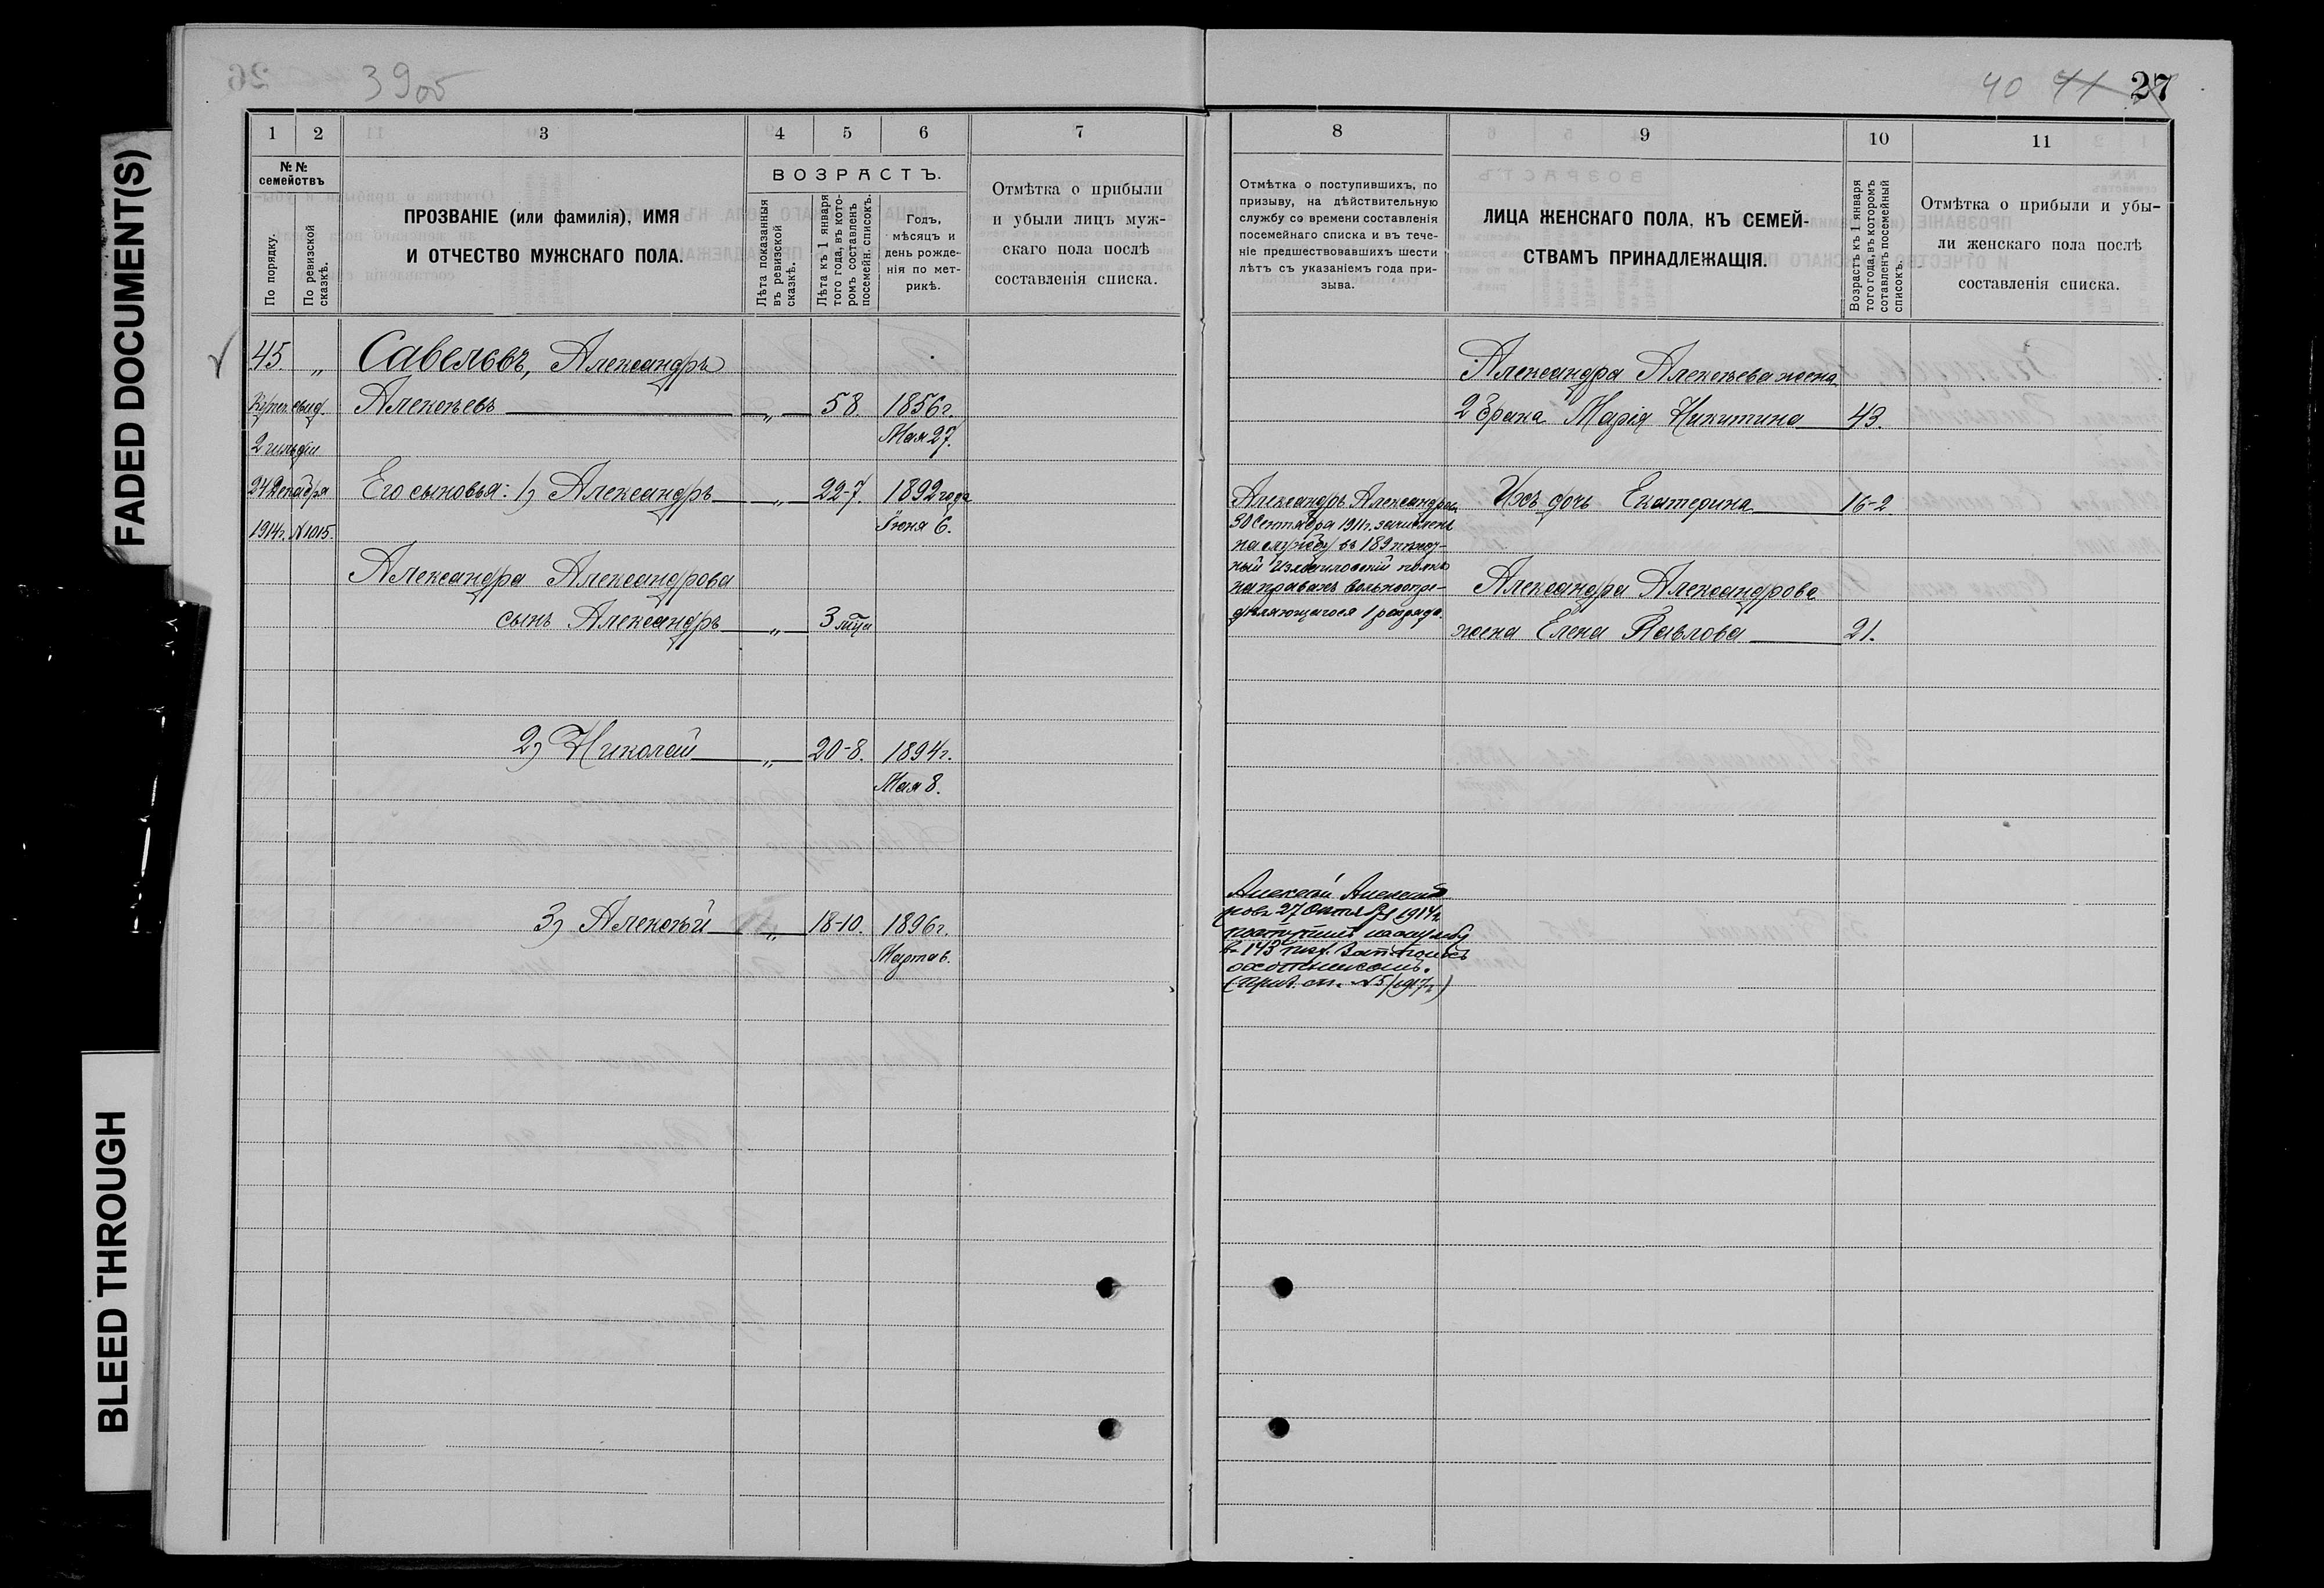 FADED DOCUMENT(S)
BLEED THROUGH
39об
40 41 27
1 2 3 4 5 6 7
№ № семействъ
По порядку.
По ревизской сказкѣ.
ПРОЗВАНІЕ (или фамилія), ИМЯ
И ОТЧЕСТВО МУЖСКАГО ПОЛА.
ВОЗРАСТЪ.
Лѣта показанныя
въ ревизской
сказкѣ.
Лѣта къ 1 января
того года, въ кото-
ромъ составленъ
посемейн. списокъ.
Годъ,
мѣсяцъ и
день рожде-
нія по мет-
рикѣ.
Отмѣтка о прибыли
и убыли лицъ муж-
скаго пола послѣ
составленія списка.
45. „ Савеловъ, Александръ
Купеч. свид. Алексѣевъ „ 58. 1856г.
2 гильдіи Мая 27.
24 Декабря Его сыновья: 1) Александръ „ 22-7. 1892 года
1914г. №1015. Іюня 6.
Александра Александрова
сынъ Александръ „ 3 мѣц
2) Николай „ 20-8. 1894г.
Мая 8.
3) Алексѣй „ 18-10. 1896г.
Марта 6.
8 9 10 11
Отмѣтка о поступившихъ, по
призыву, на дѣйствительную
службу со времени составленія
посемейнаго списка и въ тече-
ніе предшествовавшихъ шести
лѣтъ съ указаніемъ года при-
зыва.
ЛИЦА ЖЕНСКАГО ПОЛА, КЪ СЕМЕЙ-
СТВАМЪ ПРИНАДЛЕЖАЩІЯ.
Возрастъ къ 1 января
того года, въ которомъ
составленъ посемейный
списокъ.
Отмѣтка о прибыли и убы-
ли женскаго пола послѣ
составленія списка.
Александра Алексѣева жена
2 брака Марія Никитина 43.
Ихъ дочь Екатерина 16-2
Александра Александрова
жена Елена Павлова 21.
Александръ Александров.
30 Сентября 1911г. зачисленъ
на службу въ 189 пѣхот-
ный Измаиловскій полкъ
на правахъ вольноопре-
дѣляющагося 1 разряда.
Алексѣй Александ
ровъ 27 Октября 1914г
поступилъ на службу
въ 143 пѣх. полкъ
охотникомъ.
№5/1917г)